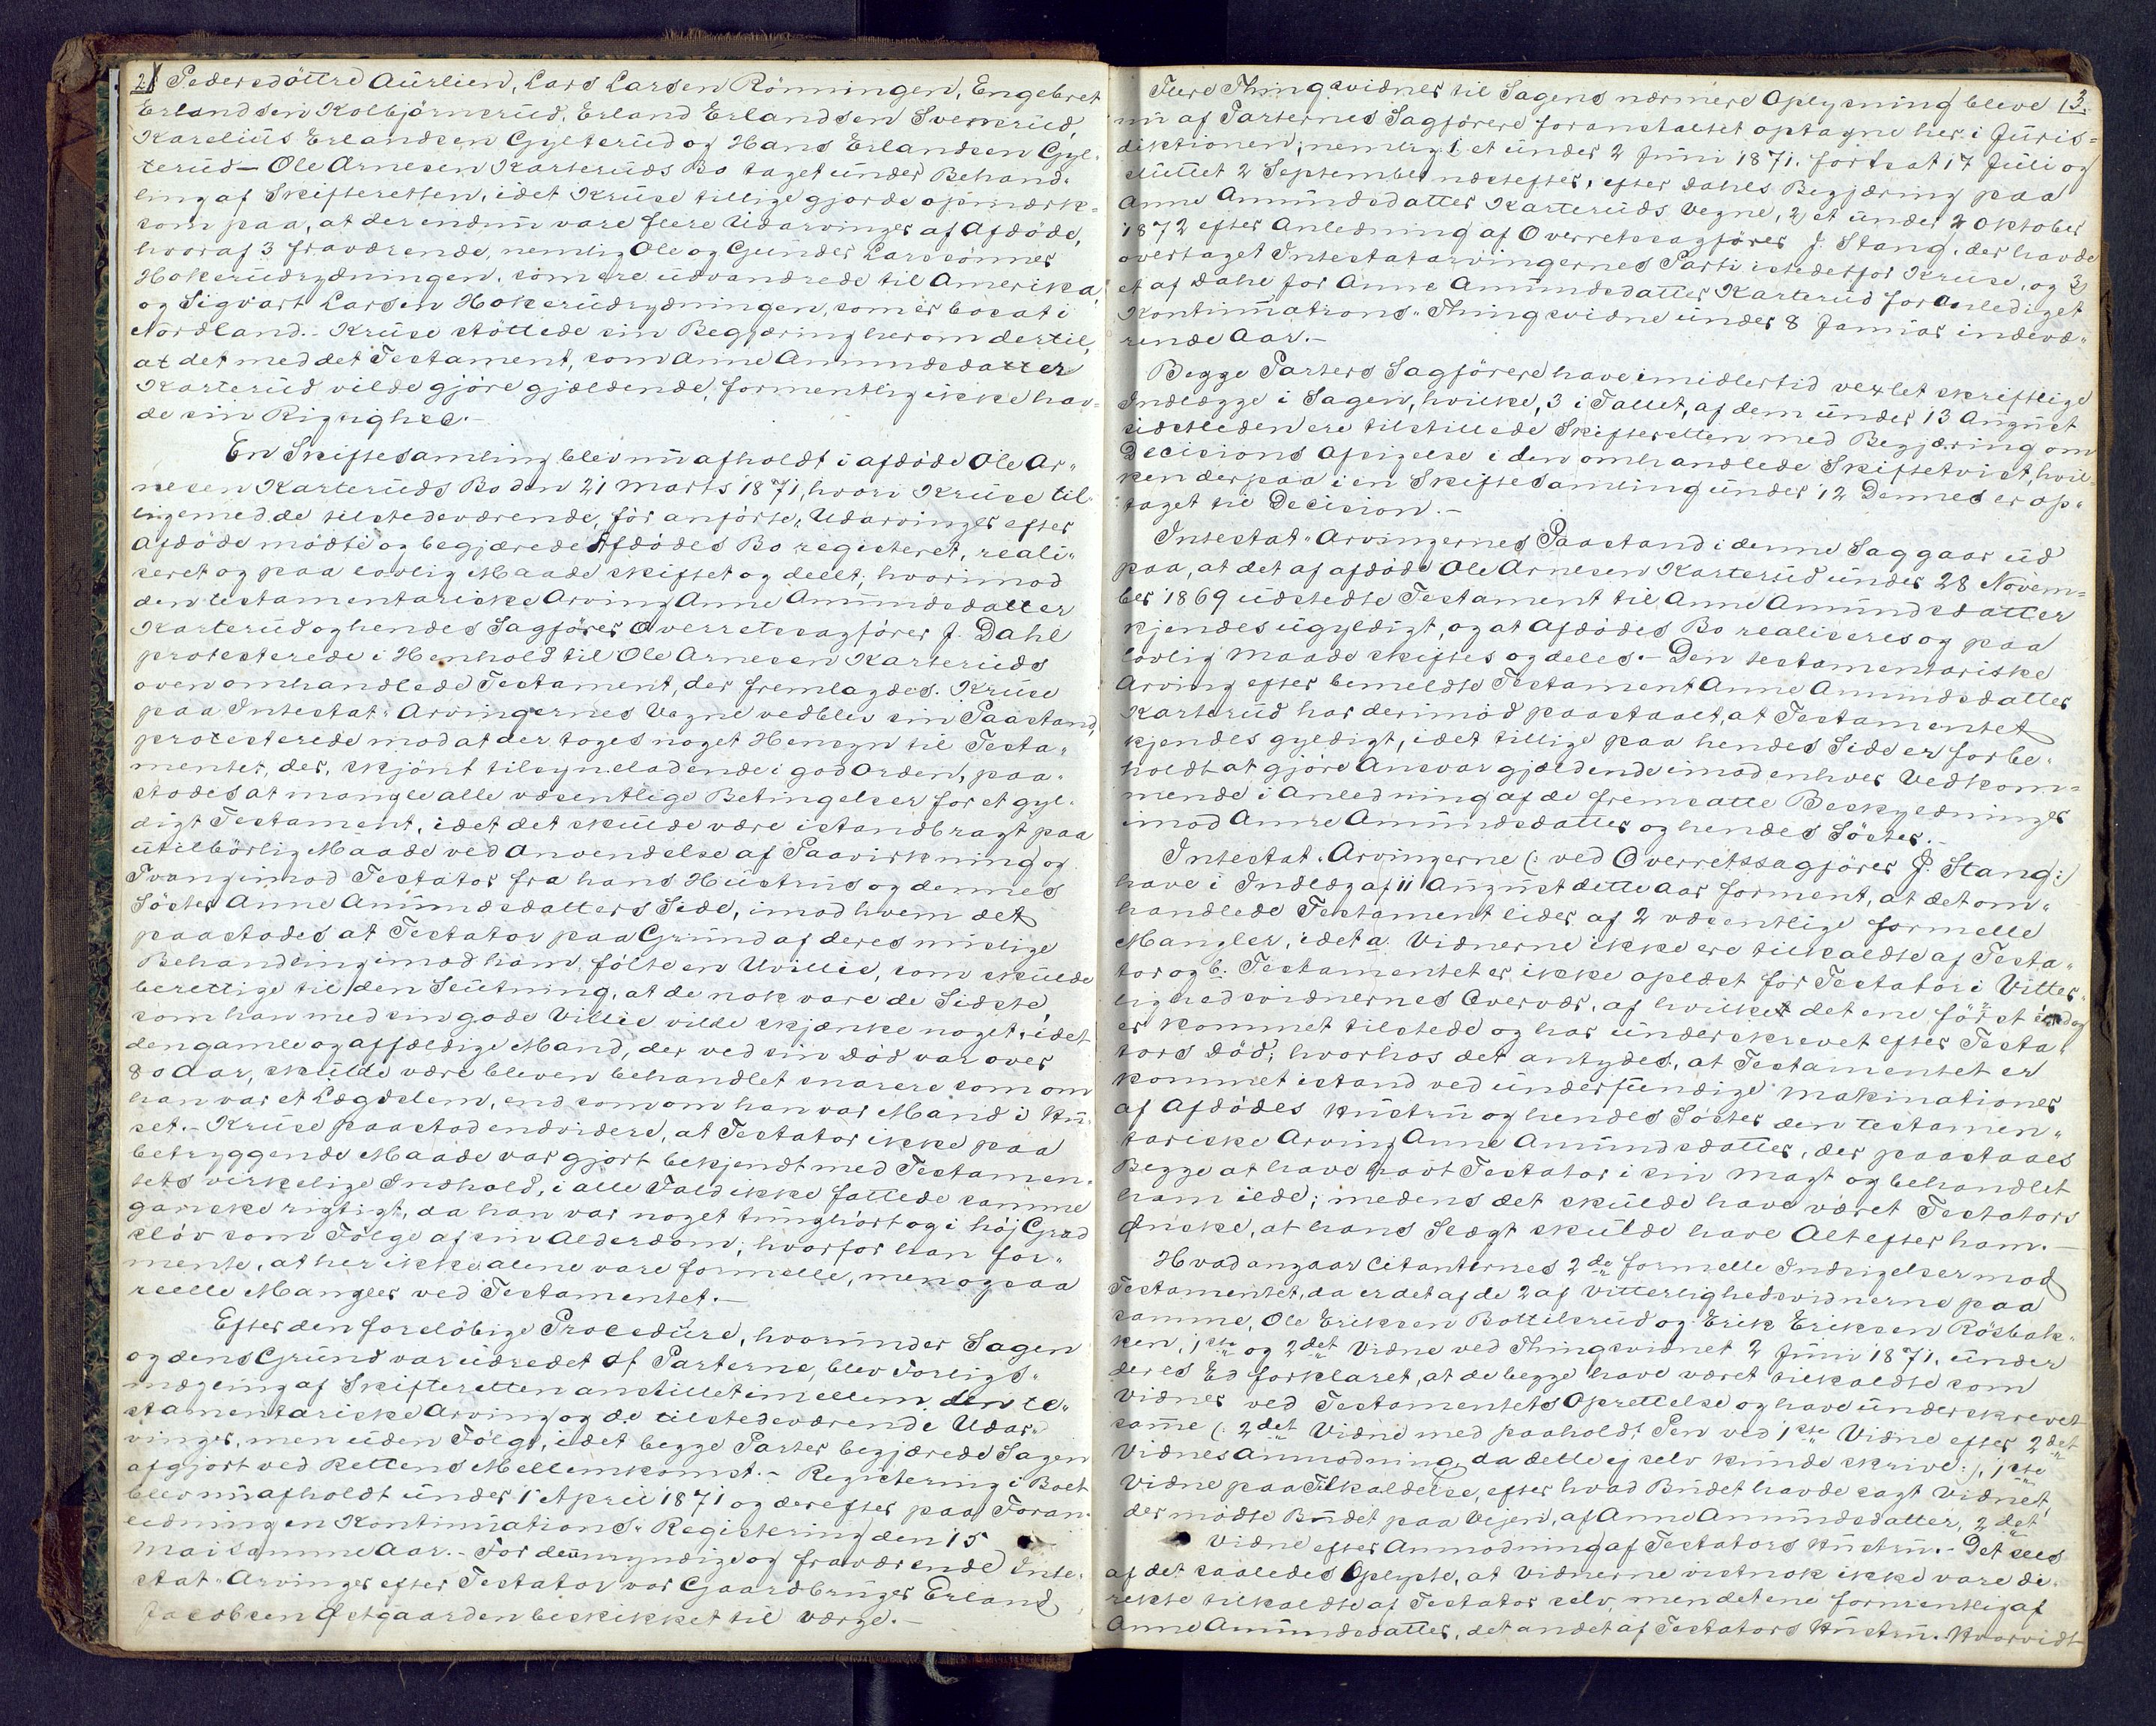 2.
Pedersdöttre Aurlien, Lars Larsen Rönningen, Engebret
Erlandsen Kolbjörnsrud, Erland Erlandsen Svensrud,
Karelius Erlandsen Gylterud og Hans Erlandsen Gyl-
terud - Ole Arnesen Karteruds Bo taget under Behand-
ling af Skifteretten, idet Kruse tillige gjorde opmærk-
som paa, at der endnu vare flere Udarvinger af Afdöde,
hvoraf 3 fraværende, nemlig Ole og Gunder Larssönner
Hokerudrydningen, som ere udvandrede til Amerika,
og Sigvart Larsen Hokerudrydningen, som er bosat i
Nordland. - Kruse stöttede sin Begjæring herom dertil,
at det med det Testament, som Anne Amundsdatter
Karterud vilde gjöre gjældende, formentlig ikke hav-
de sin Rigtighed. -
En Skiftesamling blev nu afholdt i afdöde Ole Ar-
nesen Karteruds Bo den 21 Marts 1871, hvori Kruse til-
ligemed de tilstedeværende, för anförte, Udarvinger efter
Afdöde mödte og begjærede Afdödes Bo registeret, reali-
seret og paa lovlig Maade skiftet og deelt; hvorimod
den testamentariske Arving Anne Amundsdatter
Karterud og hendes Sagförer Overretssagförer J. Dahl
protesterede i Henhold til Ole Arnesen Karteruds
ovenomhandlede Testament, der fremlagdes. Kruse
paa Intestat-Arvingernes Vegne vedblev sin Paastand,
protesterede mod at der toges noget Hensyn til Testa-
mentet, der, skjönt tilsyneladende i god Orden, paa-
stodes at mangle alle væsentlige Betingelser for et gyl-
digt Testament, idet det skulde være istandbragt paa
utilbörlig Maade ved Anvendelse af Paavirkning og
Tvang imod Testator fra hans Hustrus og dennes
Söster Anne Amundsdatters Side, imod hvem det
paastodes at Testator paa Grund af deres mislige
Behandling imod ham, fölte en Uvillie, som skulde
berettige til den Slutning, at de nok vare de Sidste,
som han med sin gode Villie vilde skjænke noget, idet
den gamle og affældige Mand, der ved sin Död var over
80 Aar, skulde være bleven behandlet snarere som om
han var et Lægdslem, end som om han var Mand i Hu-
set. - Kruse paastod endvidere, at Testator ikke paa
betryggende Maade var gjort bekjendt med Testamen-
tets virkelige Indhold, i alle Fald ikke fattede samme
ganske rigtigt, da han var noget tunghört og i höj Grad
slöv som Fölge af sin Alderdom; hvorfor han for-
mente, at her ikke alene vare formelle, men ogsaa
reelle Mangler ved Testamentet. -
Efter den foreløbige Procedure, hvorunder Sagen
og dens Grund var udredet af Parterne, blev Forligs-
mægling af Skifteretten anstillet imellem den te-
stamentariske Arving og de tilstedeværende Udar-
vinger, men uden Fölge, idet begge Parter begjærede Sagen
afgjort ved Rettens Mellemkomst. - Registering i Boet
blev nu afholdt under 1 April 1871 og derefter paa Foran-
ledning en Kontinuations-Registering den 15
Mai samme Aar. - For den myndige og fraværende Inte-
stat-Arvinger efter Testator var Gaardbruger Erland
Jacobsen Östgaarden beskikket til Værge. -
3.
Flere Thingsvidner til Sagens nærmere Oplysning bleve
nu af Parternes Sagförere foranstaltet optagne her i Juris-
diktionen; nemlig 1, et under 2 Juni 1871, fortsat 17 Juli og
sluttet 2 September næstefter, efter Dahls Begjæring paa
Anne Amundsdatter Karteruds Vegne, 2, et under 2 Oktober
1872 efter Anledning af Overretssagförer J. Stang, der havde
overtaget Intestatarvingernes Parti istedetfor Kruse, og 3,
et af Dahl for Anne Amundsdatter Karterud foranlediget
Kontinuations-Thingsvidne under 8 Januar indevæ-
rende Aar. -
Begge Parters Sagförere have imidlertid vexlet skriftlige
Indlægge i Sagen, hvilke, 3 i Tallet, af dem under 13 August
sidstleden ere tilstillede Skifteretten med Begjæring om
Decisions Afsigelse i den omhandlede Skiftetvist, hvil-
ken derpaa i en Skiftesamling under 12 Dennes er op-
taget til Decision. -
Intestat-Arvingernes Paastand i denne Sag gaar ud
paa, at det af afdöde Ole Arnesen Karterud under 28 Novem-
ber 1869 udstedte Testament til Anne Amundsdatter
kjendes ugyldigt, og at Afdödes Bo realiseres og paa
lovlig Maade skiftes og deles. - Den testamentariske
Arving efter bemeldte Testament Anne Amundsdatter
Karterud har derimod paastaaet, at Testamentet
kjendes gyldigt, idet tillige paa hendes Side er forbe-
holdt at gjöre Ansvar gjældende imod enhver Vedkom-
mende i Anledning af de fremsatte Beskyldninger
imod Anne Amundsdatter og hendes Söster. -
Intestat-Arvingerne (: ved Overretssagförer J. Stang :)
have i Indlæg af 11 August dette Aar forment, at det om-
handlede Testament lider af 2 væsentlige formelle
Mangler, idet a. Vidnerne ikke ere tilkaldte af Testa-
tor og b: Testamentet er ikke oplæst for Testator i Vitter-
lighedsvidnernes Overvær, af hvilket det ene först endog
er kommet tilstede og har underskrevet efter Testa-
tors död; hvorhos det antydes, at Testamentet er
kommet istand ved underfundige Makinationer
af Afdödes Hustru og hendes Söster den testamen-
tariske Arving Anne Amundsdatter, der paastaaes
Begge at have havt Testator i sin Magt og behandlet
ham ilde; medens det skulde have været Testators
Önske, at hans Slægt skulde have Alt efter ham. -
Hvad angaar Citanternes 2de formelle Indsigelser mod
Testamentet, da er det af de 2 af Vitterlighedsvidnerne paa
samme, Ole Eriksen Bottilsrud og Erik Eriksen Rösbak-
ken, 1ste og 2det Vidne ved Thingsvidnet 2 Juni 1871, under
deres Ed forklaret, at de begge have været tilkaldte som
Vidner ved Testamentets Oprettelse og have underskrevet
samme (: 2det Vidne med paaholdt Pen ved 1ste Vidne efter 2det
Vidnes Anmodning, da dette ej selv kunde skrive :), 1ste
Vidne paa Tilkaldelse, efter hvad Budet havde sagt Vidnet,
der mödte Budet paa Vejen, af Anne Amundsdatter, 2det
Vidne efter Anmodning af Testators Hustru. - Det sees
af det saaledes Oplyste, at Vidnerne vistnok ikke vare di-
rekte tilkaldte af Testator selv, men det ene formentlig af
Anne Amundsdatter, det andet af Testators Hustru. Hvorvidt